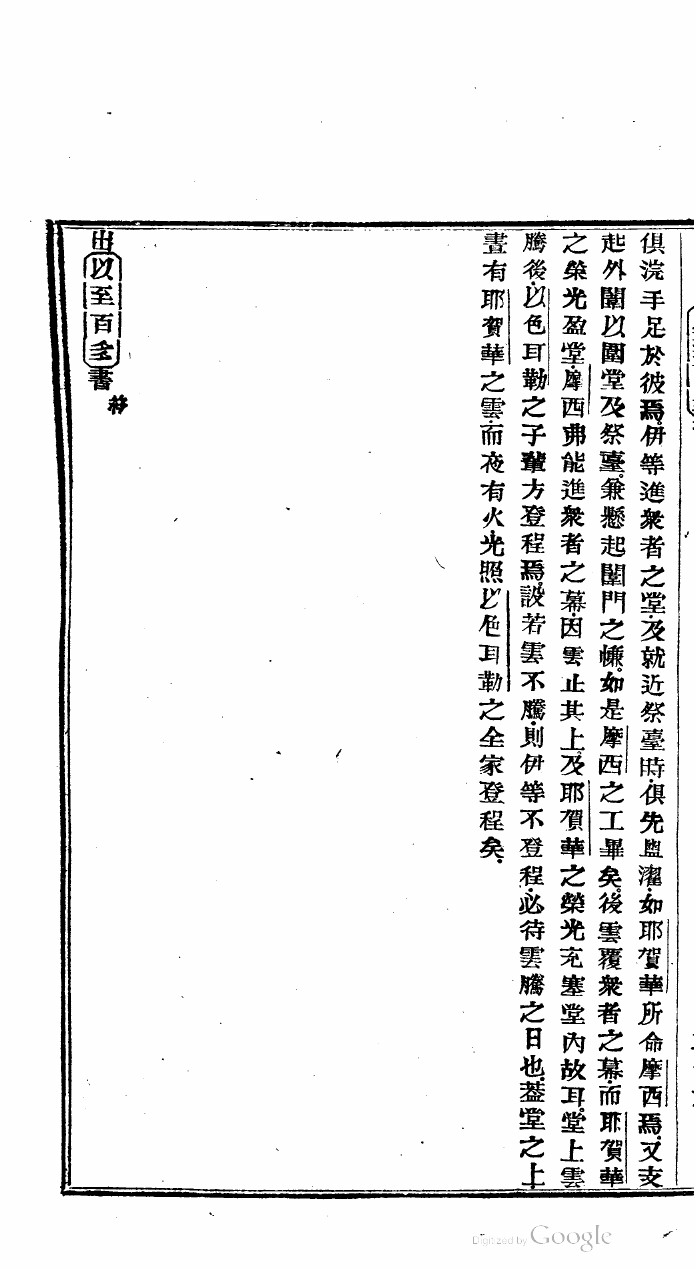 俱浣手足於彼焉伊等進衆者之堂及就近祭臺時俱先盥濯如耶賀華所命摩西焉又支
起外闈以圍堂及祭臺兼懸起闈門之㡘如是摩西之工畢矣後雲覆衆者之幕而耶賀華
之榮光盈堂摩西弗能進衆者之幕因雲止其上及耶賀華之榮光充塞堂內故耳堂上雲
騰後以色耳勒之子輩方登程焉設若雲不騰則伊等不登程必待雲騰之日也葢堂之上
晝有耶賀華之雲而夜有火光照以色耳勒之全家登程矣
出以至百多書
終
Digitized by Google